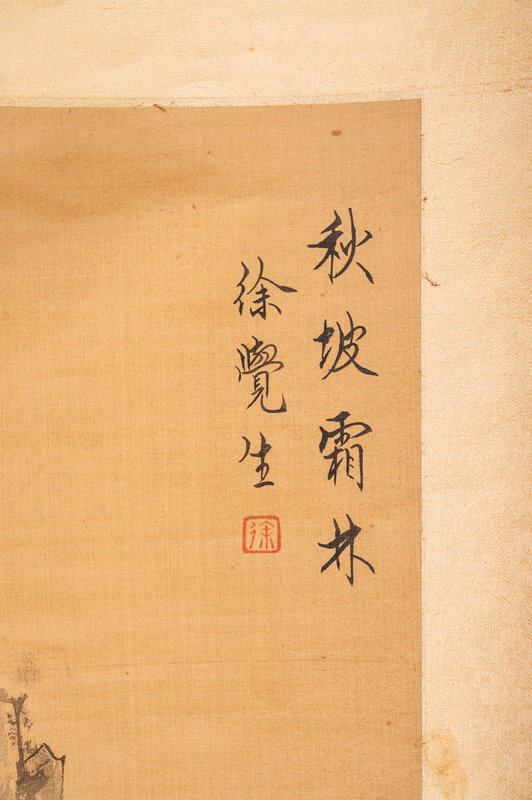 秋坡霜林
徐覺生
徐